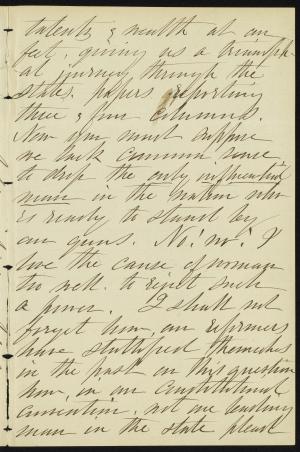 talents & wealth at our
feet, giving us a triumph-
al journey through the
states, papers reporting
three & four columns.
Now you must suppose
we lack common sense
to drop the only influential
man in the nation who
is ready to stand by
our guns. No! no! I
love the cause of woman
too well to reject such
a power. I shall not
forget how our reformers
have stultified themselves
in the past on this question
how, in our Constitutional
convention, not one leading
man in the state pleaded